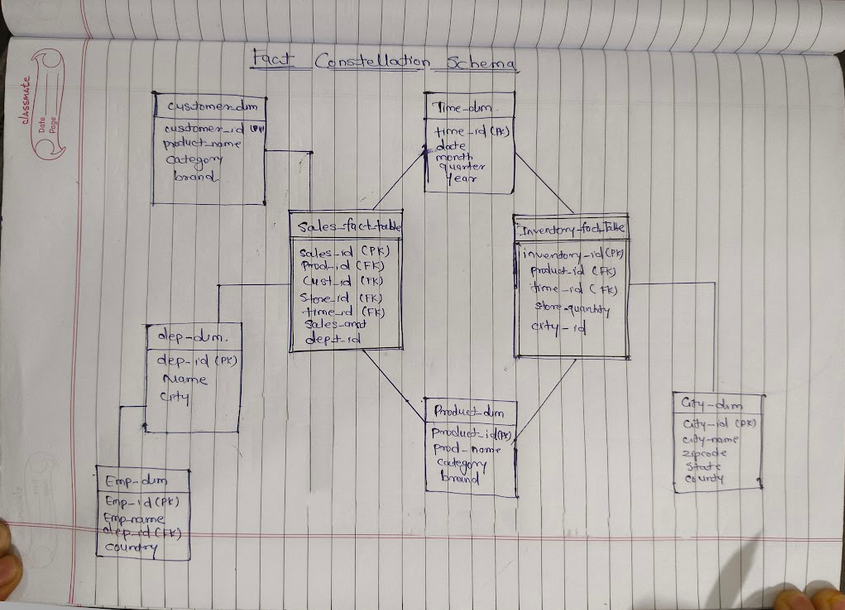 Fact Constellation Schema
classmate
Date
Page
customer_dim
customer_id (PK)
product_name
category
brand
Time_dim
time_id (PK)
date
month
quarter
Year
Sales_fact_table
Sales_id (PK)
Prod_id (FK)
Cust_id (FK)
Store_id (FK)
time_id (FK)
Sales_amt
dept_id
Inventory_fact_Table
inventory_id (PK)
product_id (FK)
time_id (FK)
store_quantity
city_id
dep_dim.
dep_id (PK)
Name
City
Product_dim
Product_id (PK)
prod_name
category
brand
City_dim
City_id (PK)
city_name
zipcode
State
county
Emp_dim
Emp_id (PK)
Emp_name
dep_id (FK)
country